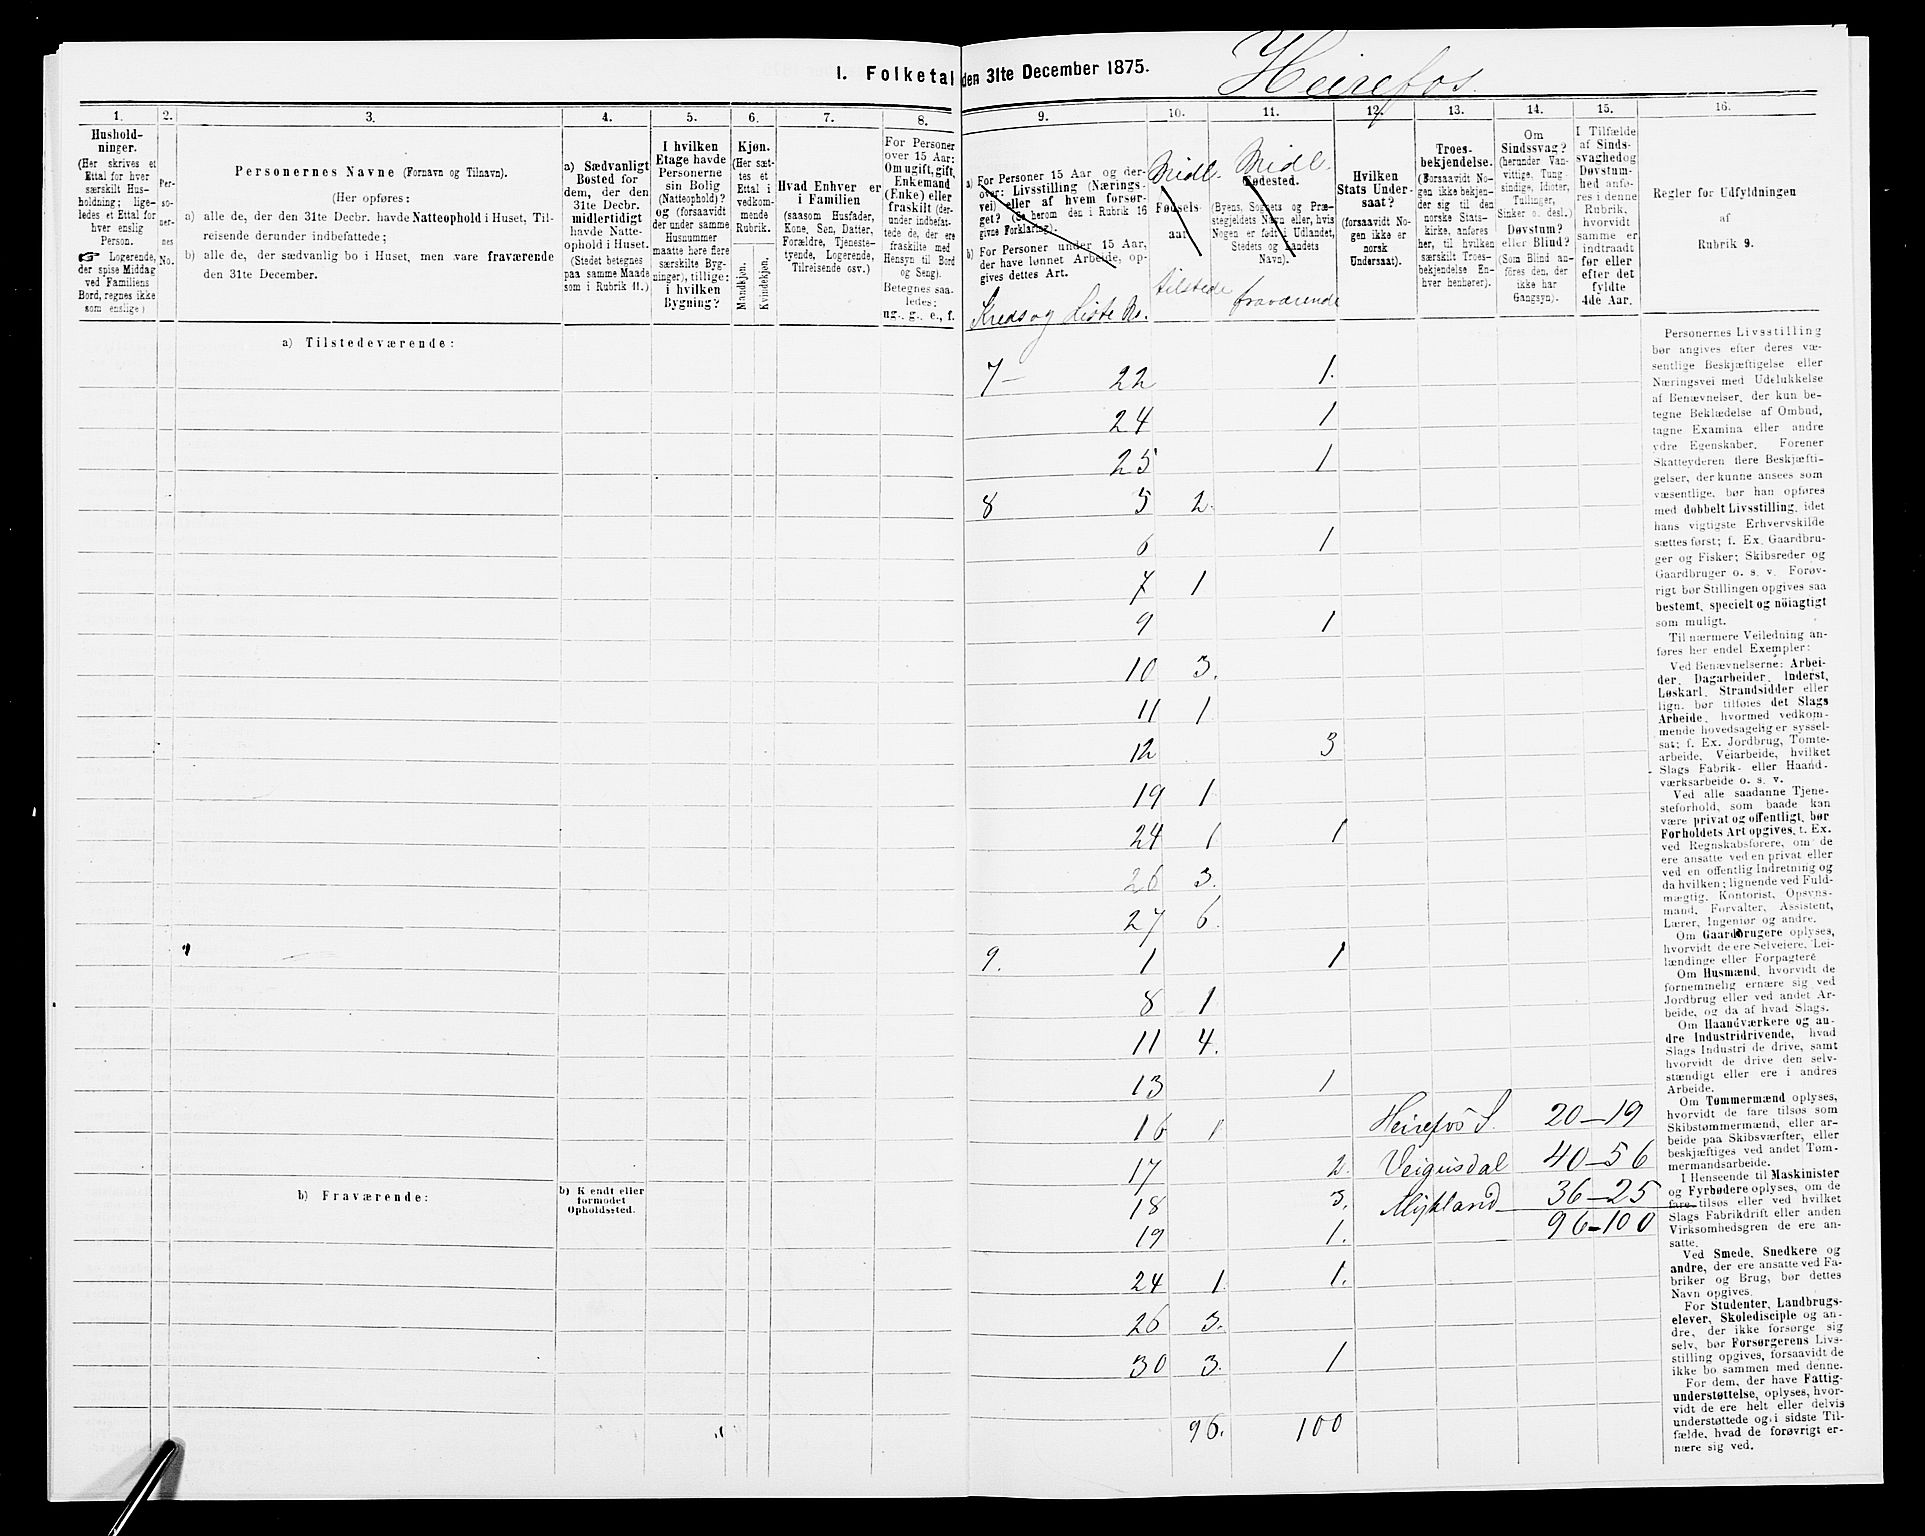 I. Folketal den 31te December 1875.
Heirefos.
1. 2. 3. 4. 5. 6. 7. 8. 9. 10. 11. 12. 13. 14. 15. 16.
Hushold-
ninger.
(Her skrives et
Ettal for hver
særskilt Hus-
holdning; lige-
ledes et Ettal for
hver enslig
Person.
☞ Logerende,
der spise Middag
ved Familiens
Bord, regnes ikke
som enslige)
Per-
so-
ner-
nes
No.
Personernes Navne (Fornavn og Tilnavn).
(Her opføres:
a) alle de, der den 31te Decbr. havde Natteophold i Huset, Til-
reisende derunder indbefattede;
b) alle de, der sædvanlig bo i Huset, men vare fraværende
den 31te December.
a) Sædvanligt
Bosted for
dem, der den
31te Decbr.
midlertidigt
havde Natte-
ophold i Huset.
(Stedet betegnes
paa samme Maade
som i Rubrik 11.)
I hvilken
Etage havde
Personerne
sin Bolig
(Natteophold)?
og (forsaavidt
der under samme
Husnummer
maatte høre flere
særskilte Byg-
ninger), tillige:
i hvilken
Bygning?
Kjøn.
(Her sæt-
tes et
Ettal i
vedkom-
mende
Rubrik.
Mandkjøn.
Kvindekjøn.
Hvad Enhver er
i Familien
(saasom Husfader,
Kone, Søn, Datter,
Forældre, Tjeneste-
tyende, Logerende,
Tilreisende osv.)
For Personer
over 15 Aar:
Om ugift, gift,
Enkemand
(Enke) eller
fraskilt (der-
under indbefat-
tede de, der ere
fraskilte med
Hensyn til Bord
og Seng).
Betegnes saa-
ledes:
ug., g., e., f.
a) For Personer 15 Aar og der-
over: Livsstilling (Nærings-
vei) eller af hvem forsør-
get? (Se herom den i Rubrik 16
givne Forklaring).
b) For Personer under 15 Aar,
der have lønnet Arbeide, op-
gives dettes Art.
Kreds og Liste No.
Midl.
Fødsels-
aar.
tilstede
Midl.
Fødested.
(Byens, Sognets og Præ-
stegjeldets Navn eller, hvis
Nogen er født i Udlandet,
Stedets og Landets
Navn).
fraværende
Hvilken
Stats Under-
saat?
(forsaavidt No-
gen ikke er
norsk
Undersaat).
Troes-
bekjendelse.
(Forsaavidt No-
gen ikke bekjen-
der sig til den
norske Stats-
kirke, anføres
her, til hvilken
særskilt Troes-
bekjendelse En-
hver henhører).
Om
Sindssvag?
(herunder Van-
vittige, Tung-
sindige, Idioter,
Tullinger,
Sinker o. desl.)
Døvstum?
eller Blind?
(Som Blind an-
føres den, der
ikke har
Gangsyn).
I Tilfælde
af Sinds-
svaghedog
Døvstum-
hed anfø-
res i denne
Rubrik,
hvorvidt
samme er
indtraadt
før eller
efter det
fyldte
4de Aar.
Regler for Udfyldningen
af
Rubrik 9.
a) Tilstedeværende:
7— 22 1.
24 1
25 1
8 5 2.
6 1
7 1
9 1
10 3.
11 1
12 3
19 1
24 1 1
26 3.
27 6.
9. 1 1
8 1
11 4.
13 1
16 1 Heirefos S. 20—19
17 2. Veigusdal 40—56
18 3. Mykland 36—25
19 1. 96—100
24 1. 1.
26 3.
30 3. 1
96. 100
b) Fraværende:
b) Kjendt eller
formodet
Opholdssted.
Personernes Livsstilling
bør angives efter deres væ-
sentlige Beskjæftigelse eller
Næringsvei med Udelukkelse
af Benævnelser, der kun be-
tegne Beklædelse af Ombud,
tagne Examina eller andre
ydre Egenskaber. Forener
Skatteyderen flere Beskjæfti-
gelser, der kunne ansees som
væsentlige, bør han opføres
med dobbelt Livsstilling, idet
hans vigtigste Erhvervskilde
sættes først; f. Ex. Gaardbru-
ger og Fisker; Skibsreder og
Gaardbruger o. s. v. Forøv-
rigt bør Stillingen opgives saa
bestemt, specielt og nöiagtigt
som muligt.
Til nærmere Veiledning an-
føres her endel Exempler:
Ved Benævnelserne: Arbei-
der, Dagarbeider, Inderst,
Løskarl, Strandsidder eller
lign. bør tilføies det Slags
Arbeide, hvormed vedkom-
mende hovedsagelig er syssel-
sat; f. Ex. Jordbrug, Tomte-
arbeide, Veiarbeide, hvilket
Slags Fabrik- eller Haand-
værksarbeide o. s. v.
Ved alle saadanne Tjene-
steforhold, som baade kan
være privat og offentligt, bør
Forholdets Art opgives, t. Ex.
ved Regnskabsførere, om de
ere ansatte ved en privat eller
ved en offentlig Indretning og
da hvilken; lignende ved Fuld-
mægtig, Kontorist, Opsyns-
mand, Forvalter, Assistent,
Lærer, Ingeniør og andre.
Om Gaardbrugere oplyses,
hvorvidt de ere Selveiere, Lei-
lændinge eller Forpagtere
Om Husmænd, hvorvidt de
fornemmelig ernære sig ved
Jordbrug eller ved andet Ar-
beide, og da af hvad Slags.
Om Haandværkere og an-
dre Industridrivende, hvad
Slags Industri de drive, samt
hvorvidt de drive den selv-
stændigt eller ere i andres
Arbeide.
Om Tømmermænd oplyses,
hvorvidt de fare tilsøs som
Skibstømmermænd, eller ar-
beide paa Skibsværfter, eller
beskjæftiges ved andet Tøm-
mermandsarbeide.
I Henseende til Maskinister
og Fyrbødere oplyses, om de
fare tilsøs eller ved hvilket
Slags Fabrikdrift eller anden
Virksomhedsgren de ere an-
satte.
Ved Smede, Snedkere og
andre, der ere ansatte ved Fa-
briker og Brug, bør dettes
Navn opgives.
For Studenter, Landbrugs-
elever, Skoledisciple og an-
dre, der ikke forsørge sig
selv, bør Forsørgerens Livs-
stilling opgives, forsaavidt de
ikke bo sammen med denne.
For dem, der have Fattig-
understøttelse, oplyses, hvor-
vidt de ere helt eller delvis
understøttede og i sidste Til-
fælde, hvad de forøvrigt er-
nære sig ved.